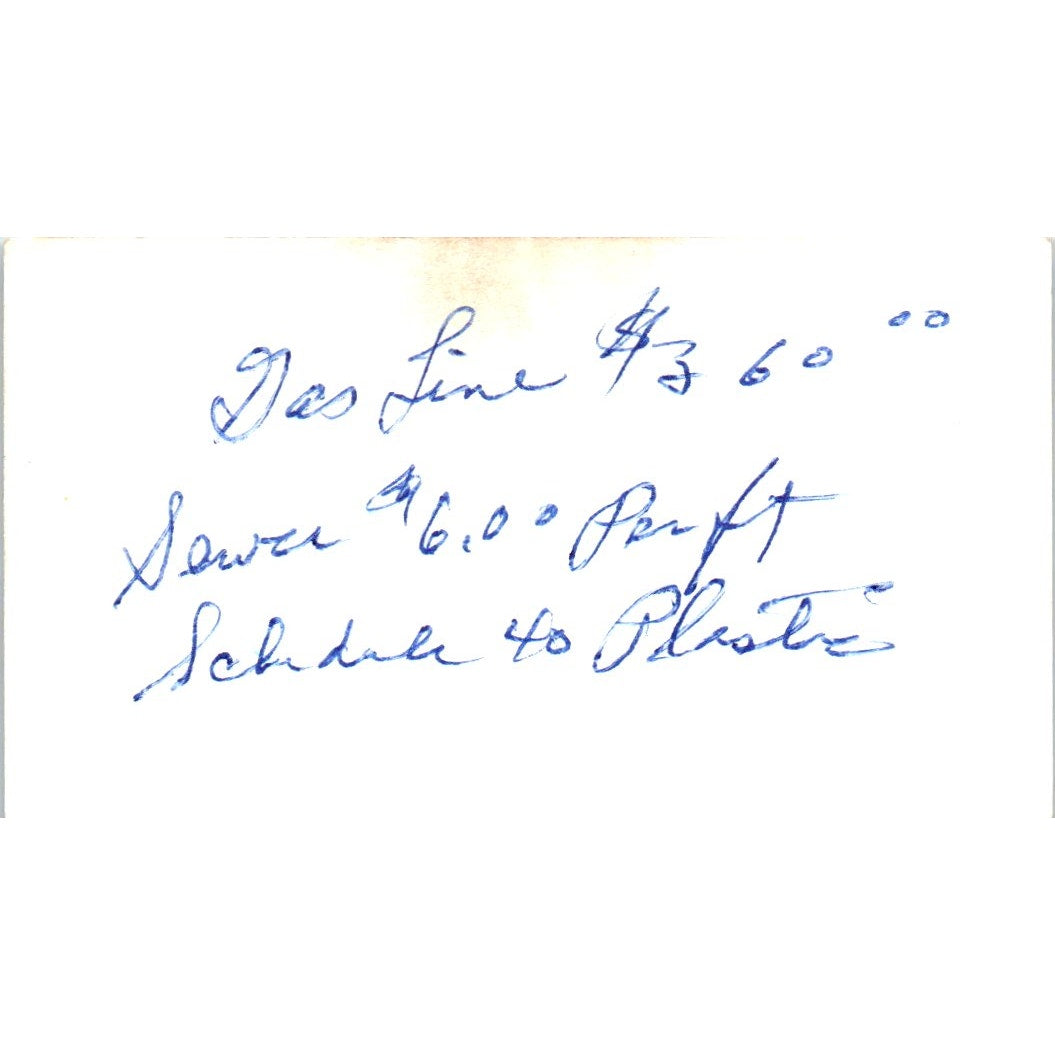 Gas Line $360 00
Sewer $6.00 Per ft
Schedule 40 Plastic